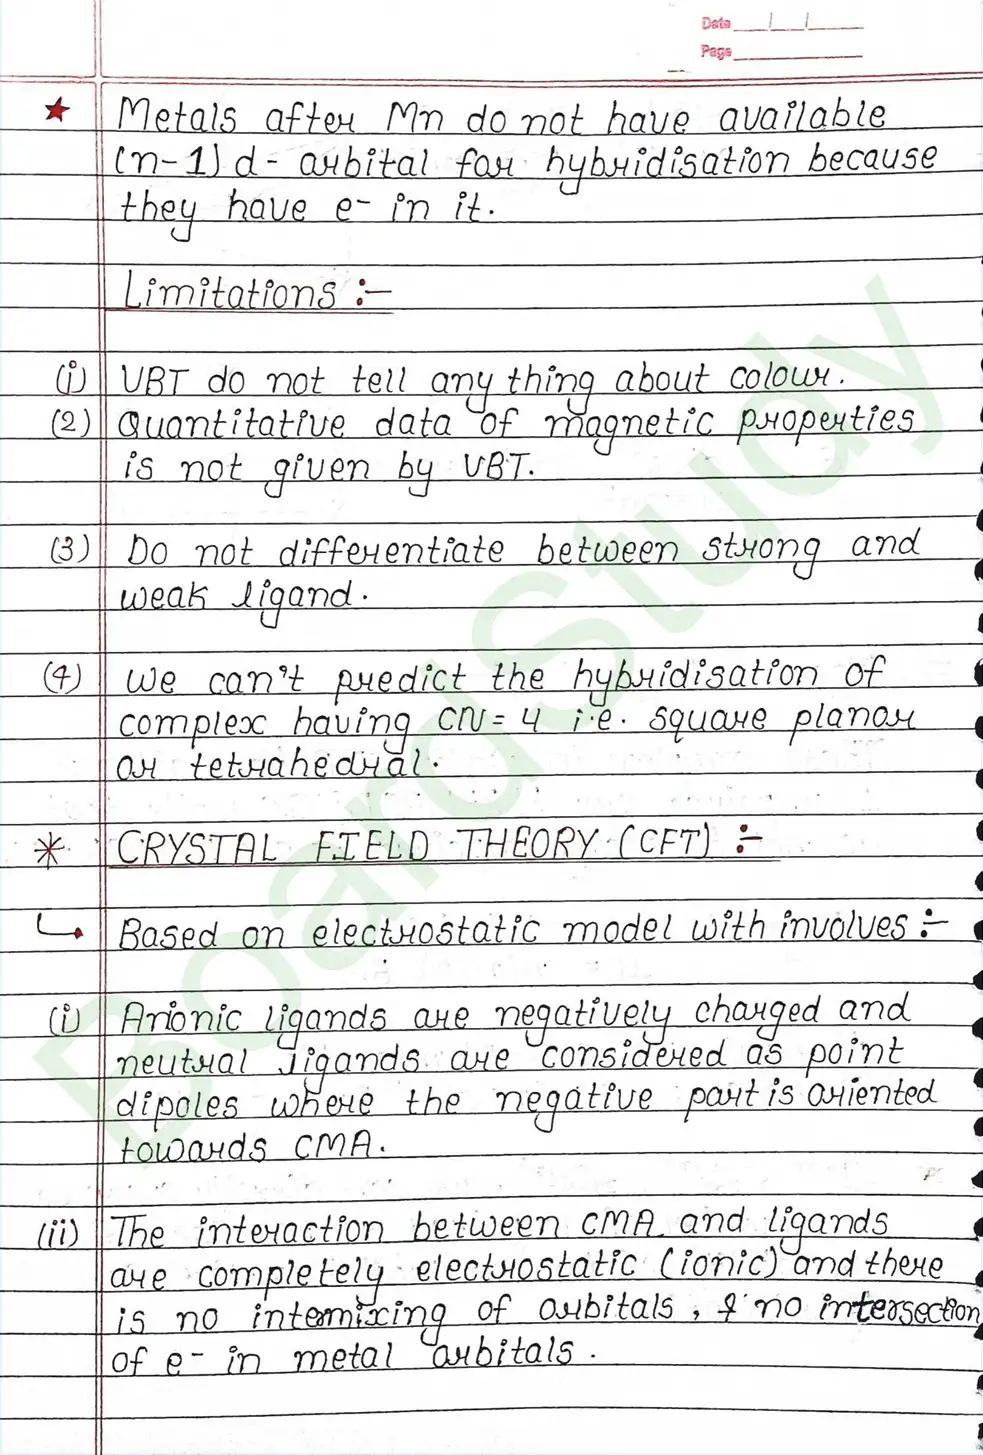 Date
Page
★ Metals after Mn do not have available
(n-1) d - orbital for hybridisation because
they have e- in it.
Limitations :-
(i) VBT do not tell any thing about colour.
(2) Quantitative data of magnetic properties
is not given by VBT.
(3) Do not differentiate between strong and
weak ligand.
(4) we can't predict the hybridisation of
complex having CN = 4 i.e. square planar
or tetrahedral.
* CRYSTAL FIELD THEORY (CFT) :-
↳ Based on electrostatic model with involves :-
(i) Anionic ligands are negatively charged and
neutral ligands are considered as point
dipoles where the negative part is oriented
towards CMA.
(ii) The interaction between CMA and ligands
are completely electrostatic (ionic) and there
is no intermixing of orbitals, & no intersection
of e- in metal orbitals.
BoardStudy